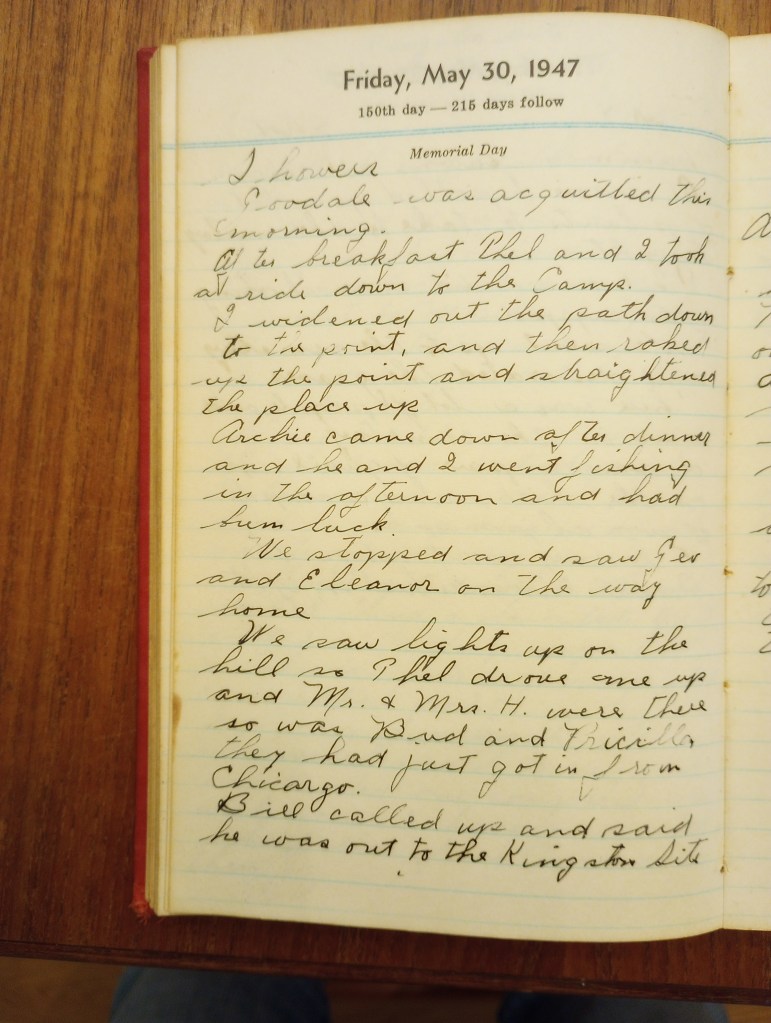 Friday, May 30, 1947
150th day — 215 days follow
Memorial Day
Showers
Goodale was acquitted this
morning.
After breakfast Phel and I took
a ride down to the Camp.
I widened out the path down
to the point, and then raked
up the point and straightened
the place up
Archie came down after dinner
and he and I went fishing
in the afternoon and had
bum luck.
We stopped and saw Gev
and Eleanor on the way
home
We saw lights up on the
hill so Phel drove me up
and Mr. & Mrs. H. were there
so was Bud and Pricilla,
they had just got in from
Chicargo.
Bill called up and said
he was out to the Kingston Site